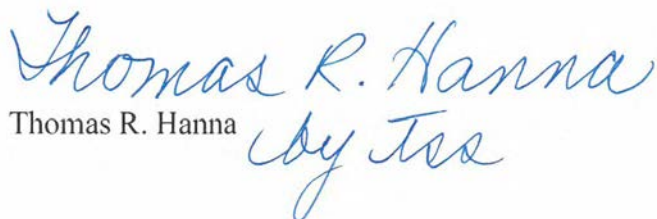 Thomas R. Hanna
Thomas R. Hanna
by tss